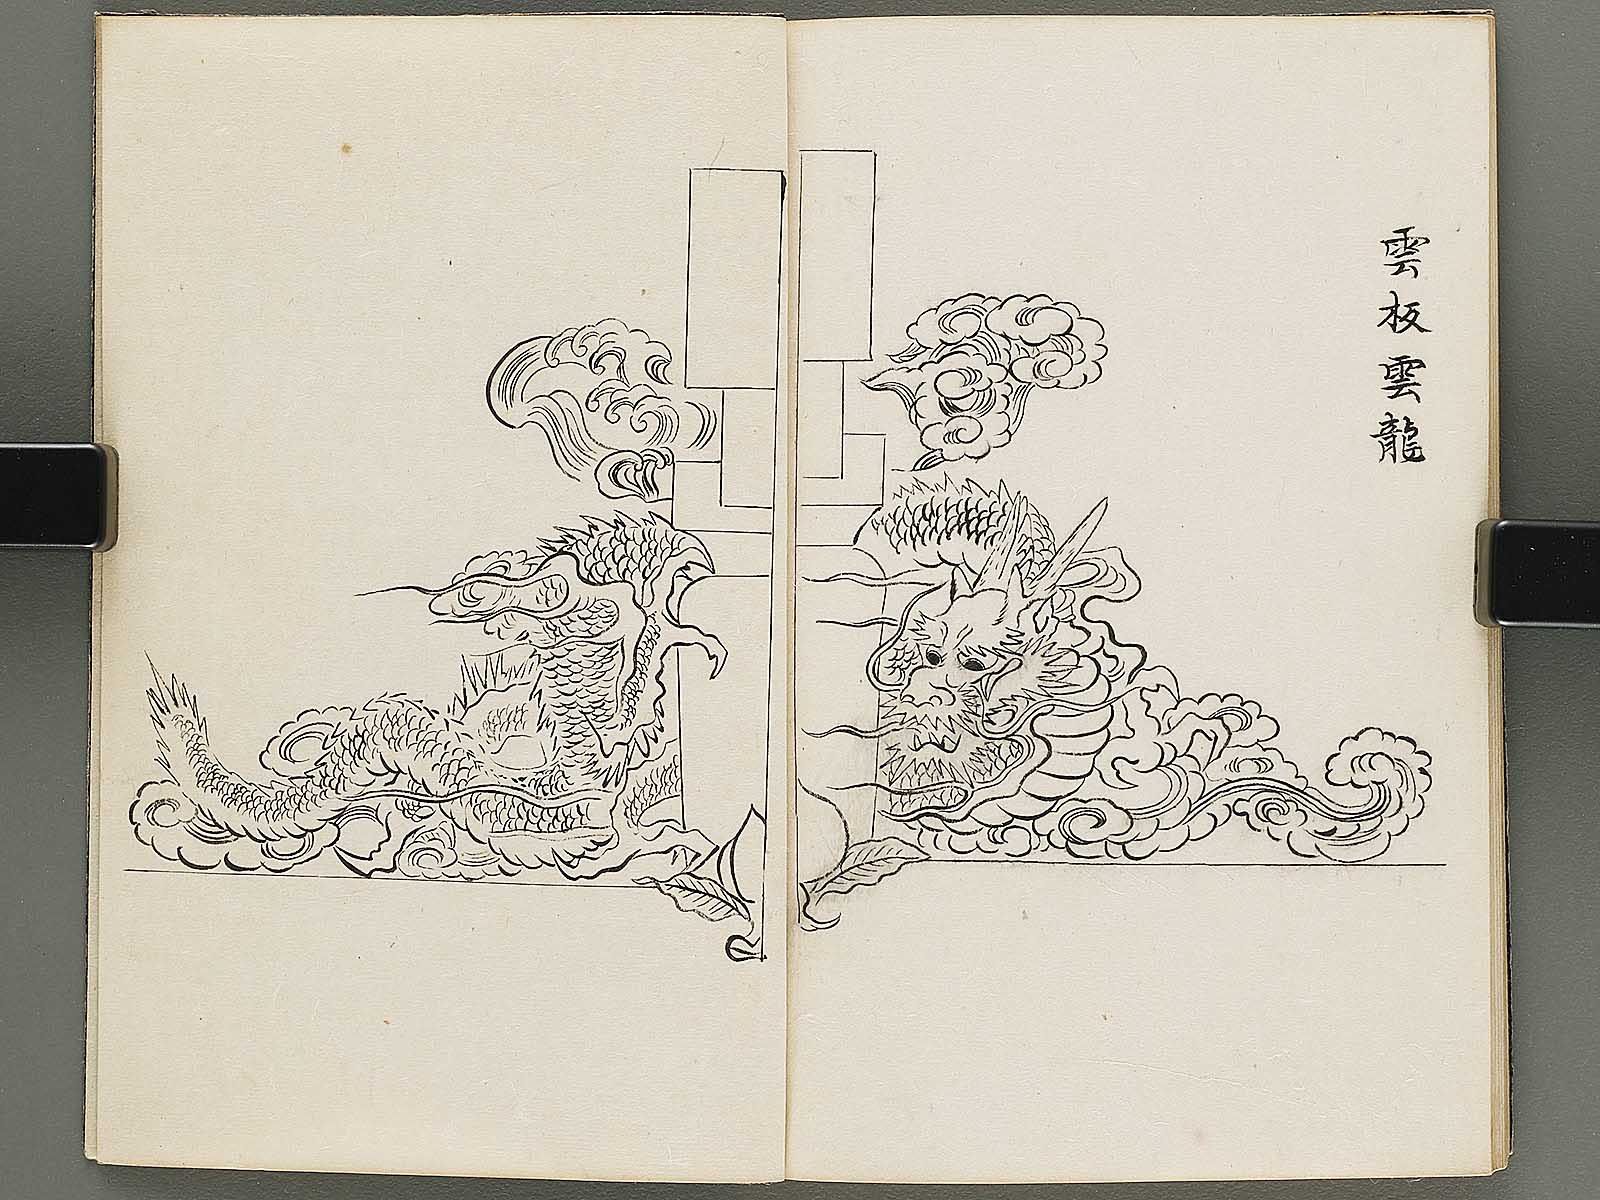 雲板雲龍